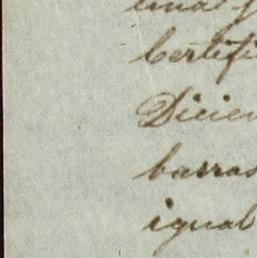 Certifi
Diciem
barras
igual